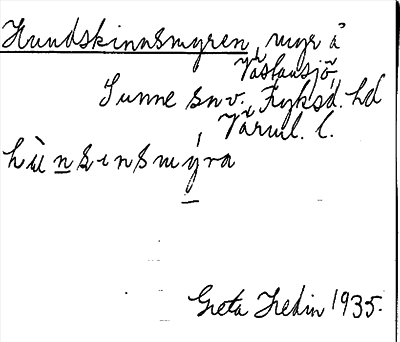 Hundskinnsmyren, myr å
Västansjö,
Sunne snv. Fryksd. hd
Värml. l.
hùnsinsmýra
Greta Hedin 1935.